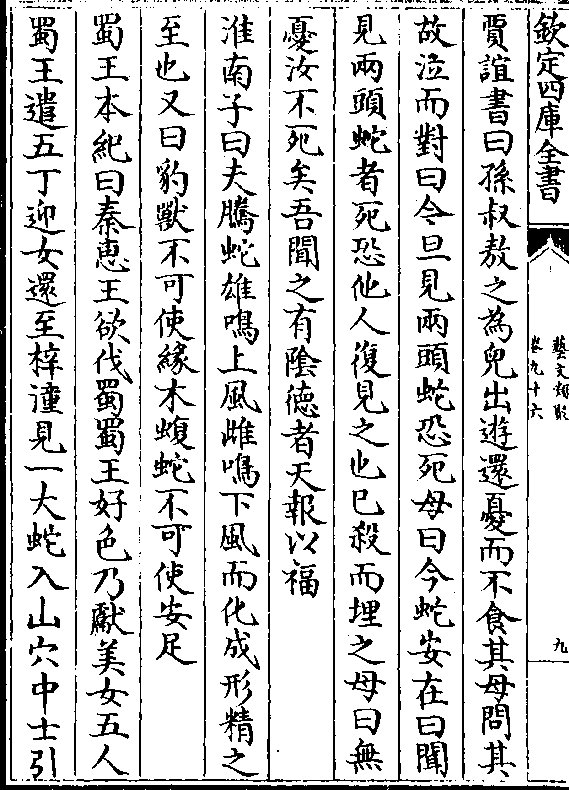 欽定四庫全書
藝文類聚
卷九十六
九
賈誼書曰孫叔敖之為兒出遊還憂而不食其母問其
故泣而對曰今旦見兩頭蛇恐死母曰今蛇安在曰聞
見兩頭蛇者死恐他人復見之也已殺而埋之母曰無
憂汝不死矣吾聞之有陰德者天報以福
淮南子曰夫騰蛇雄鳴上風雌鳴下風而化成形精之
至也又曰豹獸不可使緣木蝮蛇不可使安足
蜀王本紀曰秦惠王欲伐蜀蜀王好色乃獻美女五人
蜀王遣五丁迎女還至梓潼見一大蛇入山穴中士引